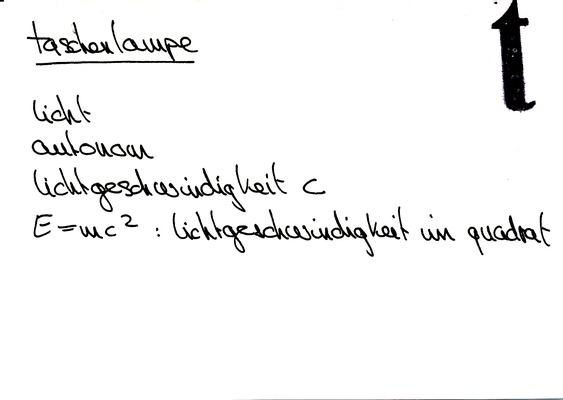 t
taschenlampe
licht
autonom
lichtgeschwindigkeit c
E=mc² : lichtgeschwindigkeit im quadrat